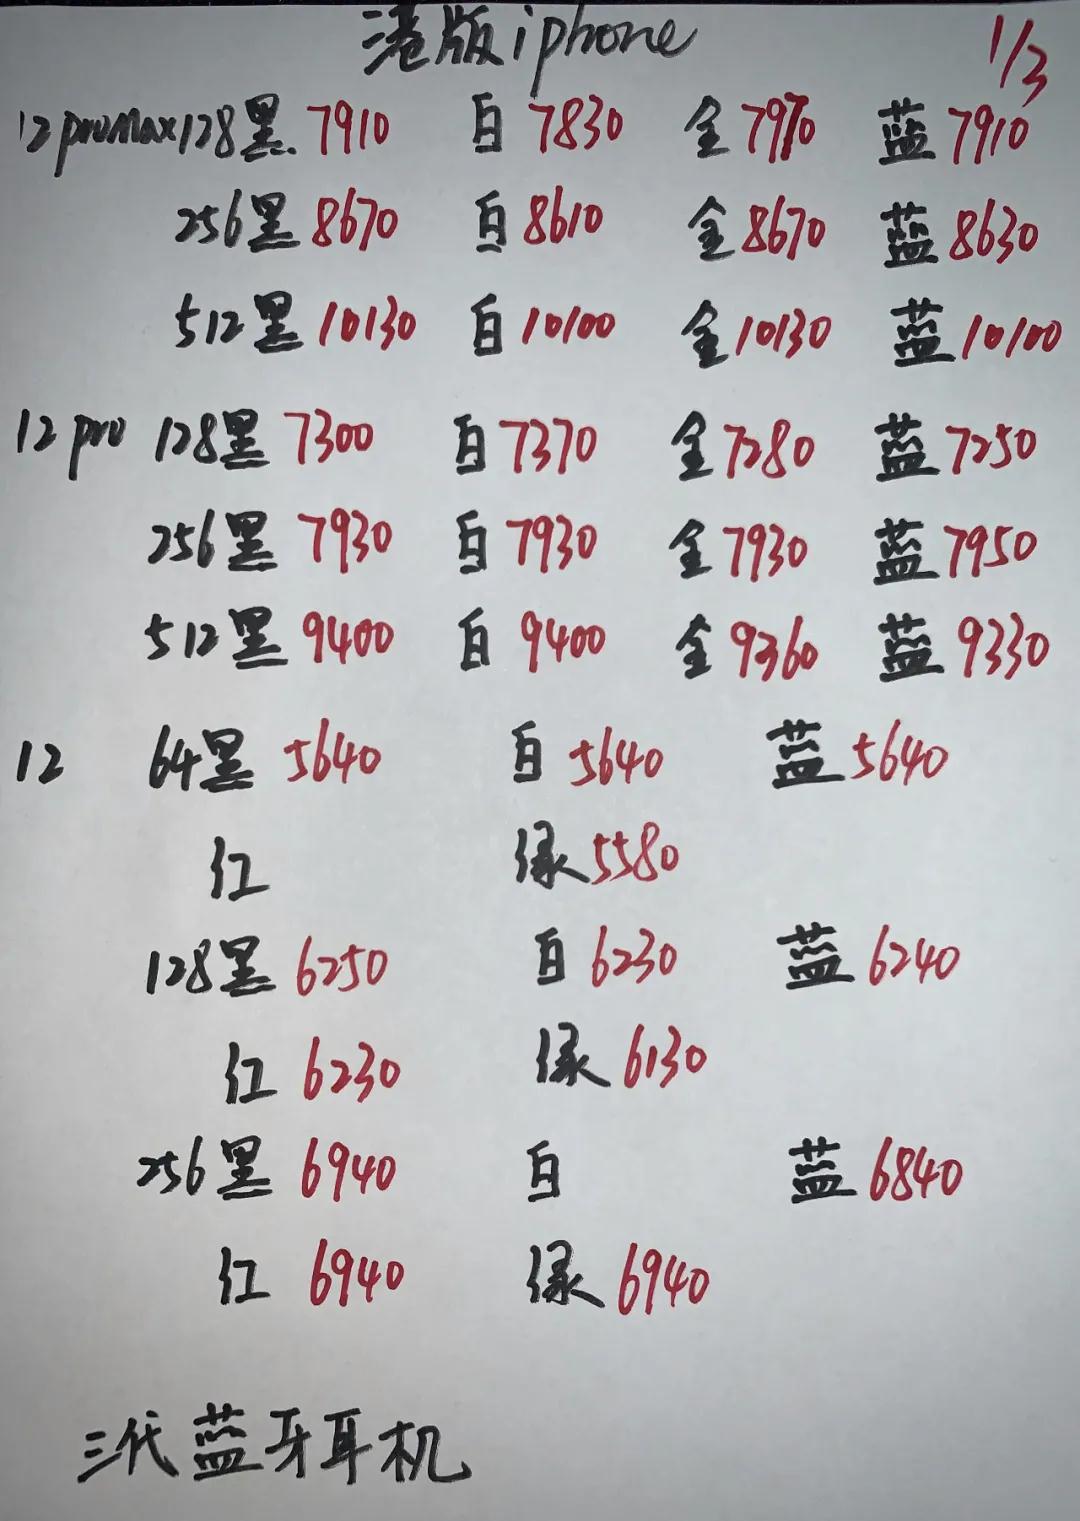 港版iphone 1/3
12promax128黑 7910 白 7830 金 7970 蓝 7910
256黑 8670 白 8610 金 8670 蓝 8630
512黑 10130 白 10100 金 10130 蓝 10100
12 pro 128黑 7300 白 7370 金 7280 蓝 7250
256黑 7930 白 7930 金 7930 蓝 7950
512黑 9400 白 9400 金 9360 蓝 9330
12 64黑 5640 白 5640 蓝 5640
红 绿 5580
128黑 6250 白 6230 蓝 6240
红 6230 绿 6130
256黑 6940 白 蓝 6840
红 6940 绿 6940
三代蓝牙耳机